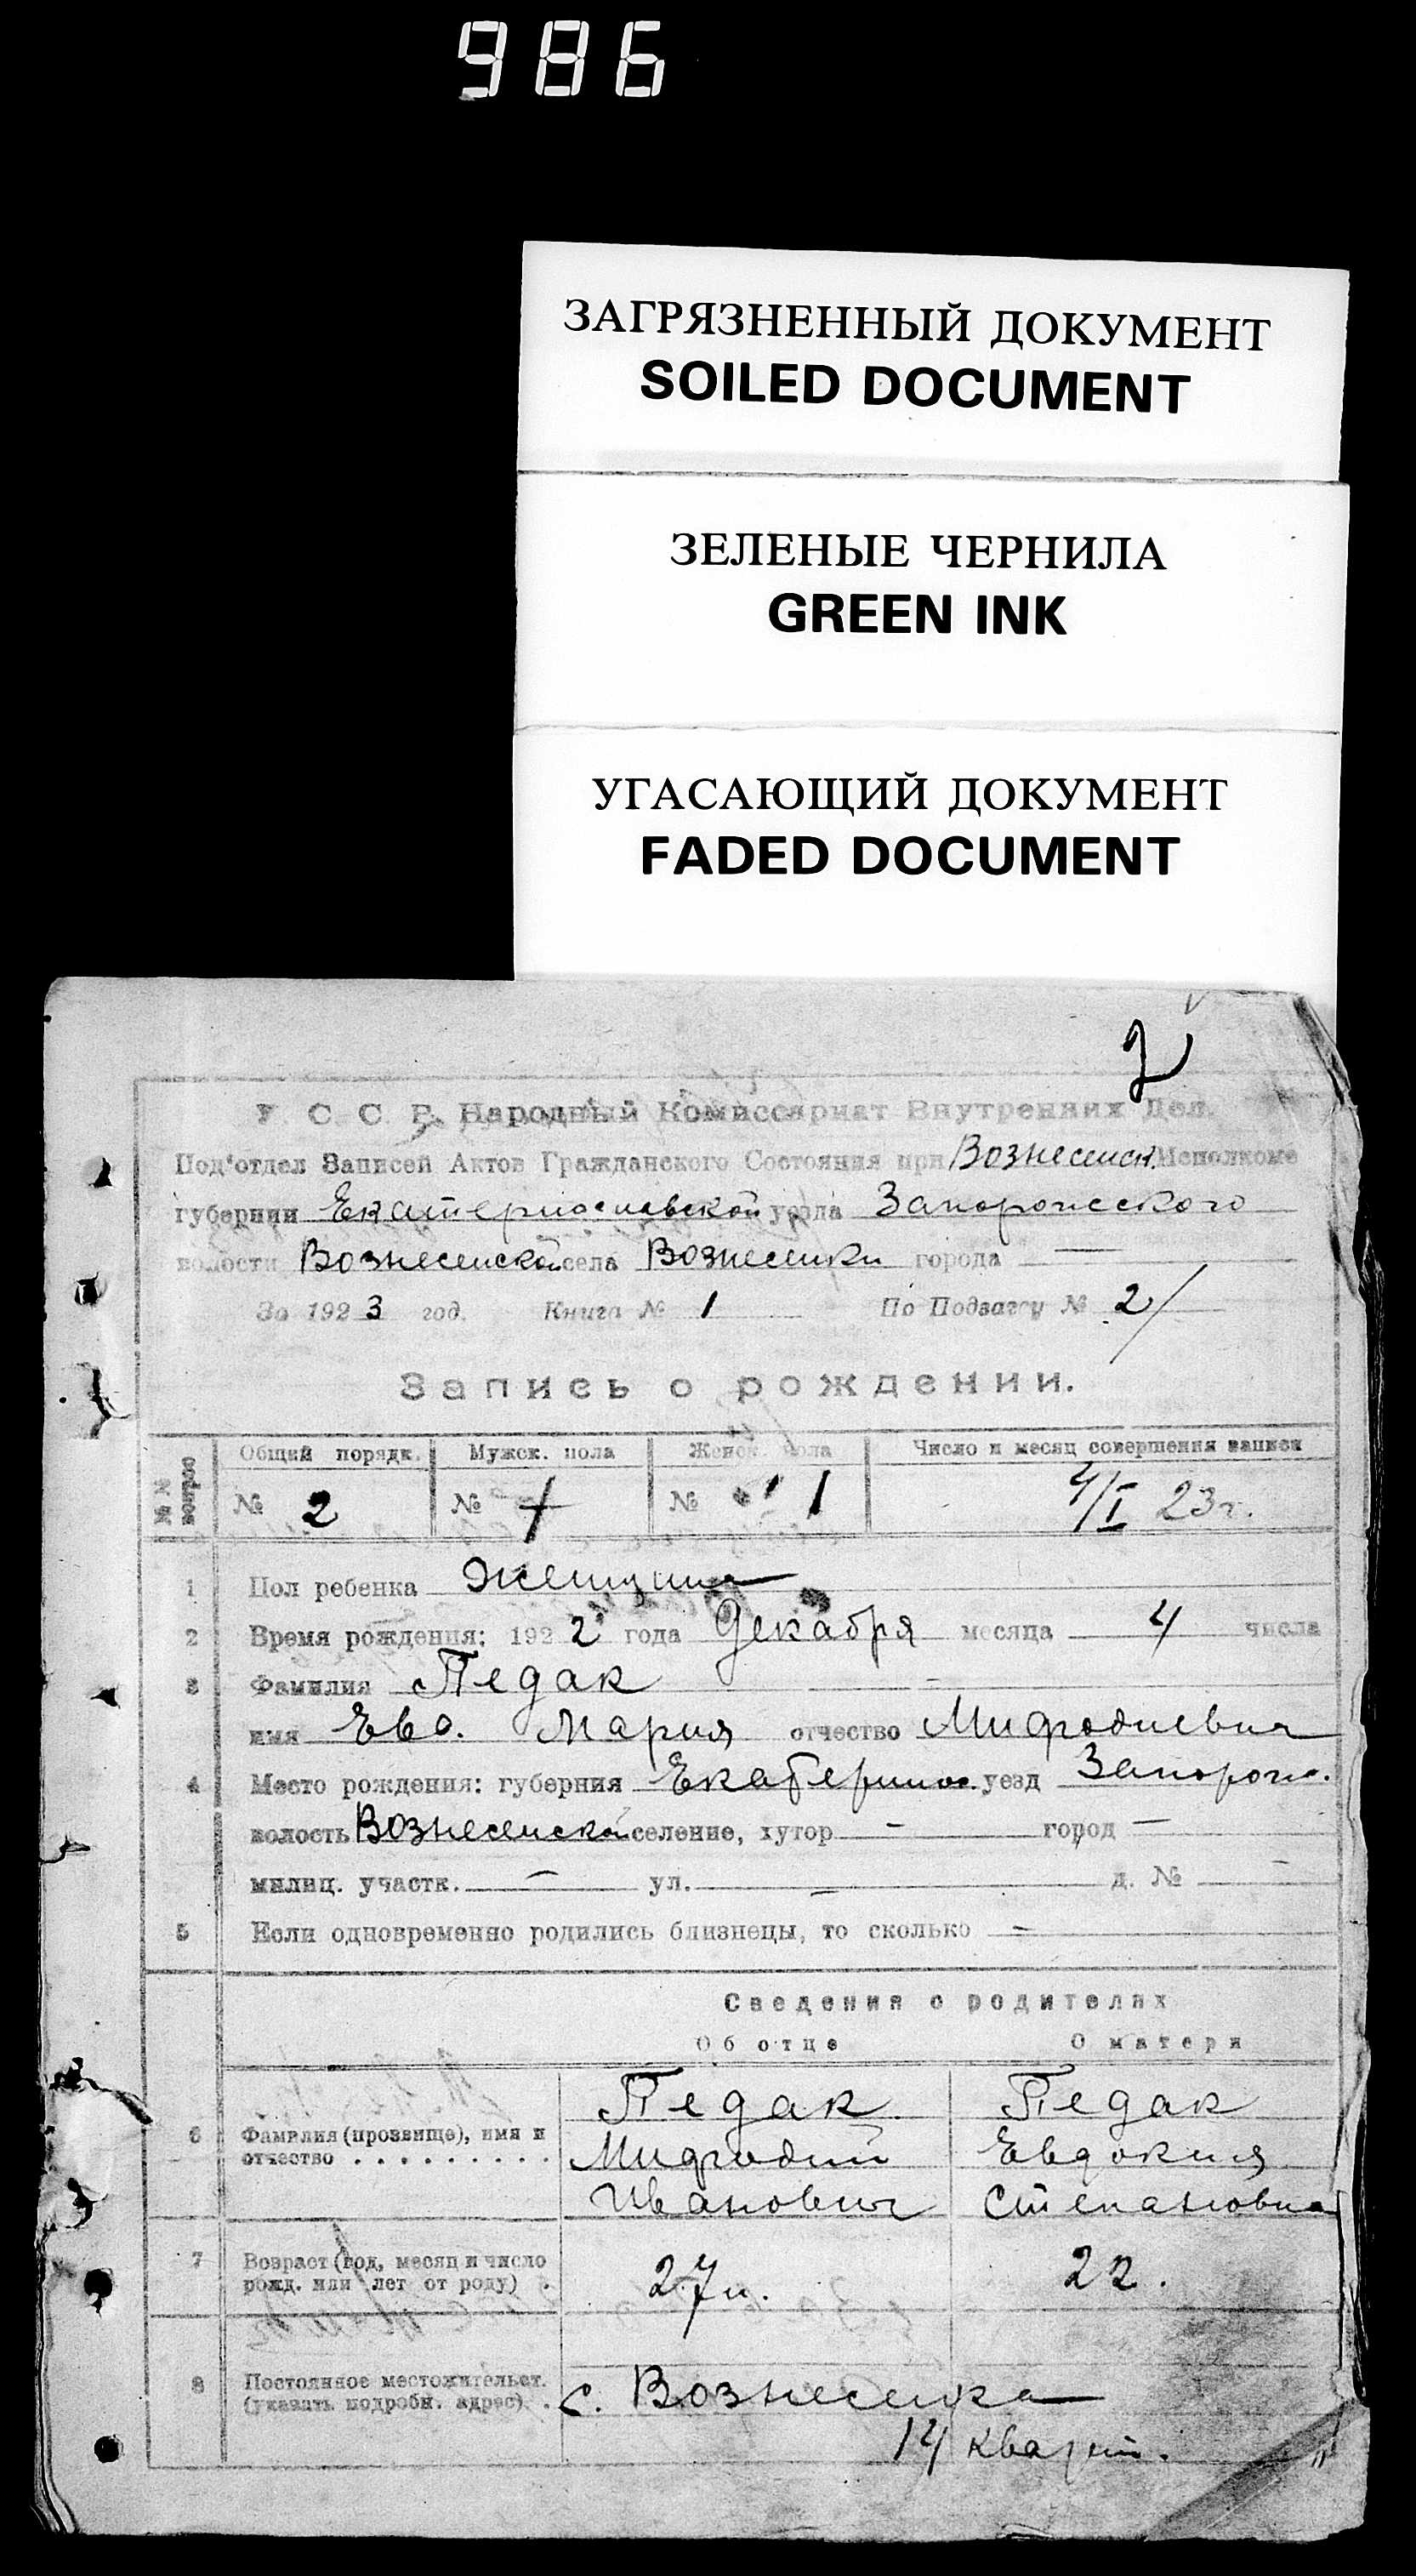 986
ЗАГРЯЗНЕННЫЙ ДОКУМЕНТ
SOILED DOCUMENT
ЗЕЛЕНЫЕ ЧЕРНИЛА
GREEN INK
УГАСАЮЩИЙ ДОКУМЕНТ
FADED DOCUMENT
2
У. С. С. Р. Народный Комиссариат Внутренних Дел.
Под'отдел Записей Актов Гражданского Состояния при Вознесенск. Исполкоме
губернии Екатеринославской уезда Запорожского
волости Вознесенской села Вознесенки города —
За 1923 год. Книга № 1 По Подзагсу № 2/
Запись о рождении.
№№ вопрос
Общий порядк. Мужск. пола Женск. пола Число и месяц совершения записи
№ 2 № № 1 4/I 23 г.
1 Пол ребенка женщина
2 Время рождения: 1922 года Декабря месяца 4 числа
3 Фамилия Педак —
имя Ева. Мария отчество Мифодиевна
4 Место рождения: губерния Екатеринос. уезд Запорож.
волость Вознесенской селение, хутор — город —
милиц. участк. — ул. — д. № —
5 Если одновременно родились близнецы, то сколько —
Сведения о родителях
Об отце О матери
Педак Педак
6 Фамилия (прозвище), имя и отчество . . . . . . . . . Мифодий Евдокия
Иванович Степановна
7 Возраст (год, месяц и число
рожд. или лет от роду) . 27 л. 22.
8 Постоянное местожительст.
(указать подробн. адрес) . с. Вознесенка
14 кварт.